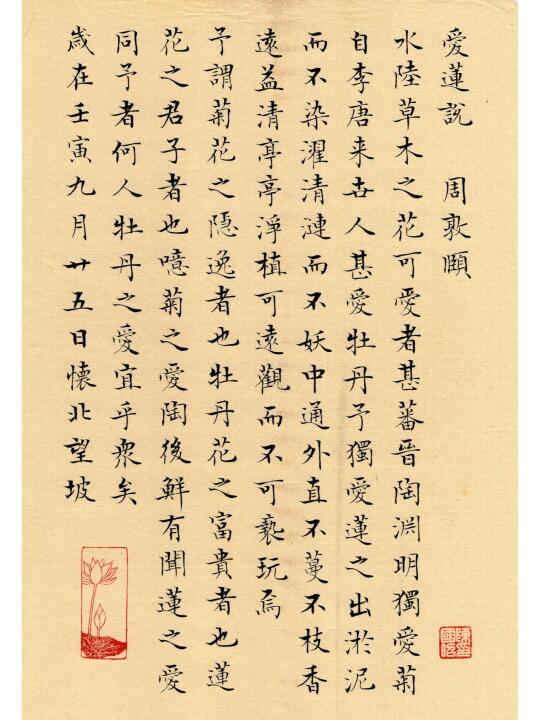 愛蓮說 周敦頤
水陸草木之花可愛者甚蕃晉陶渊明獨愛菊
自李唐来世人甚愛牡丹予獨愛蓮之出淤泥
而不染濯清漣而不妖中通外直不蔓不枝香
遠益清亭亭淨植可遠觀而不可褻玩焉
予謂菊花之隐逸者也牡丹花之富貴者也蓮
花之君子者也噫菊之愛陶後鮮有聞蓮之愛
同予者何人牡丹之愛宜乎衆矣
歲在壬寅九月廿五日懷北望坡